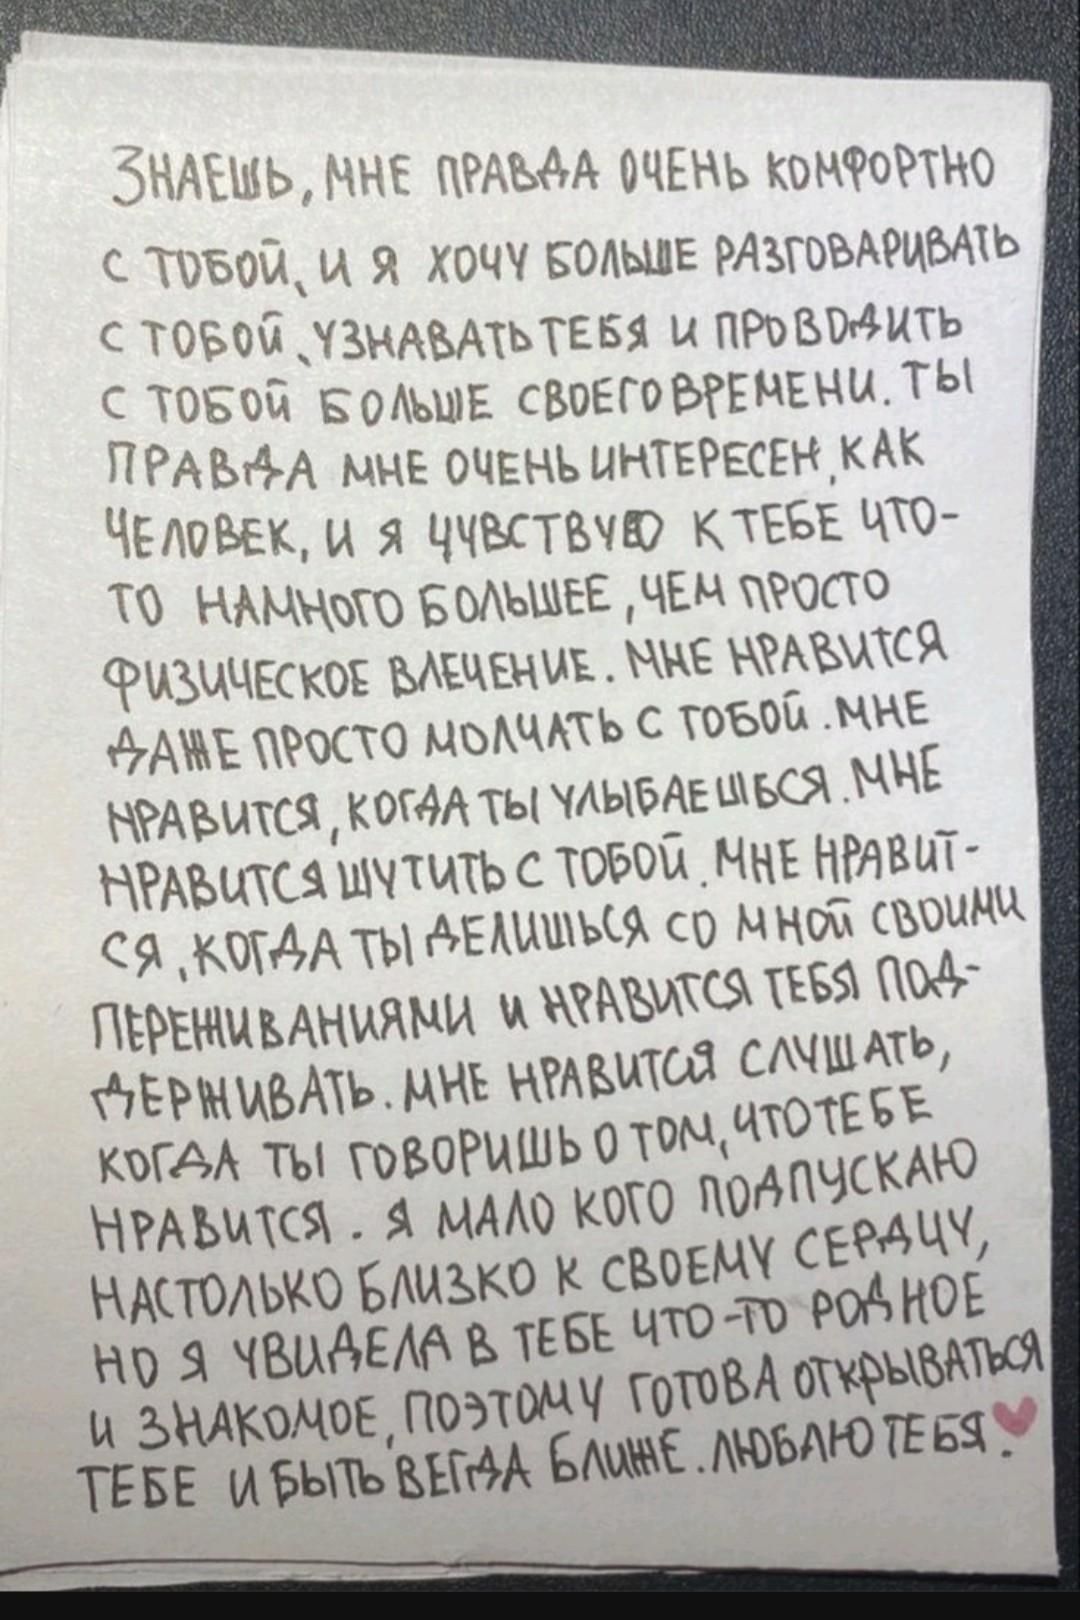 Знаешь, мне правда очень комфортно
с тобой, и я хочу больше разговаривать
с тобой, узнавать тебя и проводить
с тобой больше своего времени. Ты
правда мне очень интересен, как
человек, и я чувствую к тебе что-
то намного большее, чем просто
физическое влечение. Мне нравится
даже просто молчать с тобой. Мне
нравится, когда ты улыбаешься. Мне
нравится шутить с тобой. Мне нравит-
ся, когда ты делишься со мной своими
переживаниями и нравится тебя под-
держивать. Мне нравится слушать,
когда ты говоришь о том, что тебе
нравится. Я мало кого подпускаю
настолько близко к своему сердцу,
но я увидела в тебе что-то родное
и знакомое, поэтому готова открываться
тебе и быть вегда ближе. Люблю тебя.